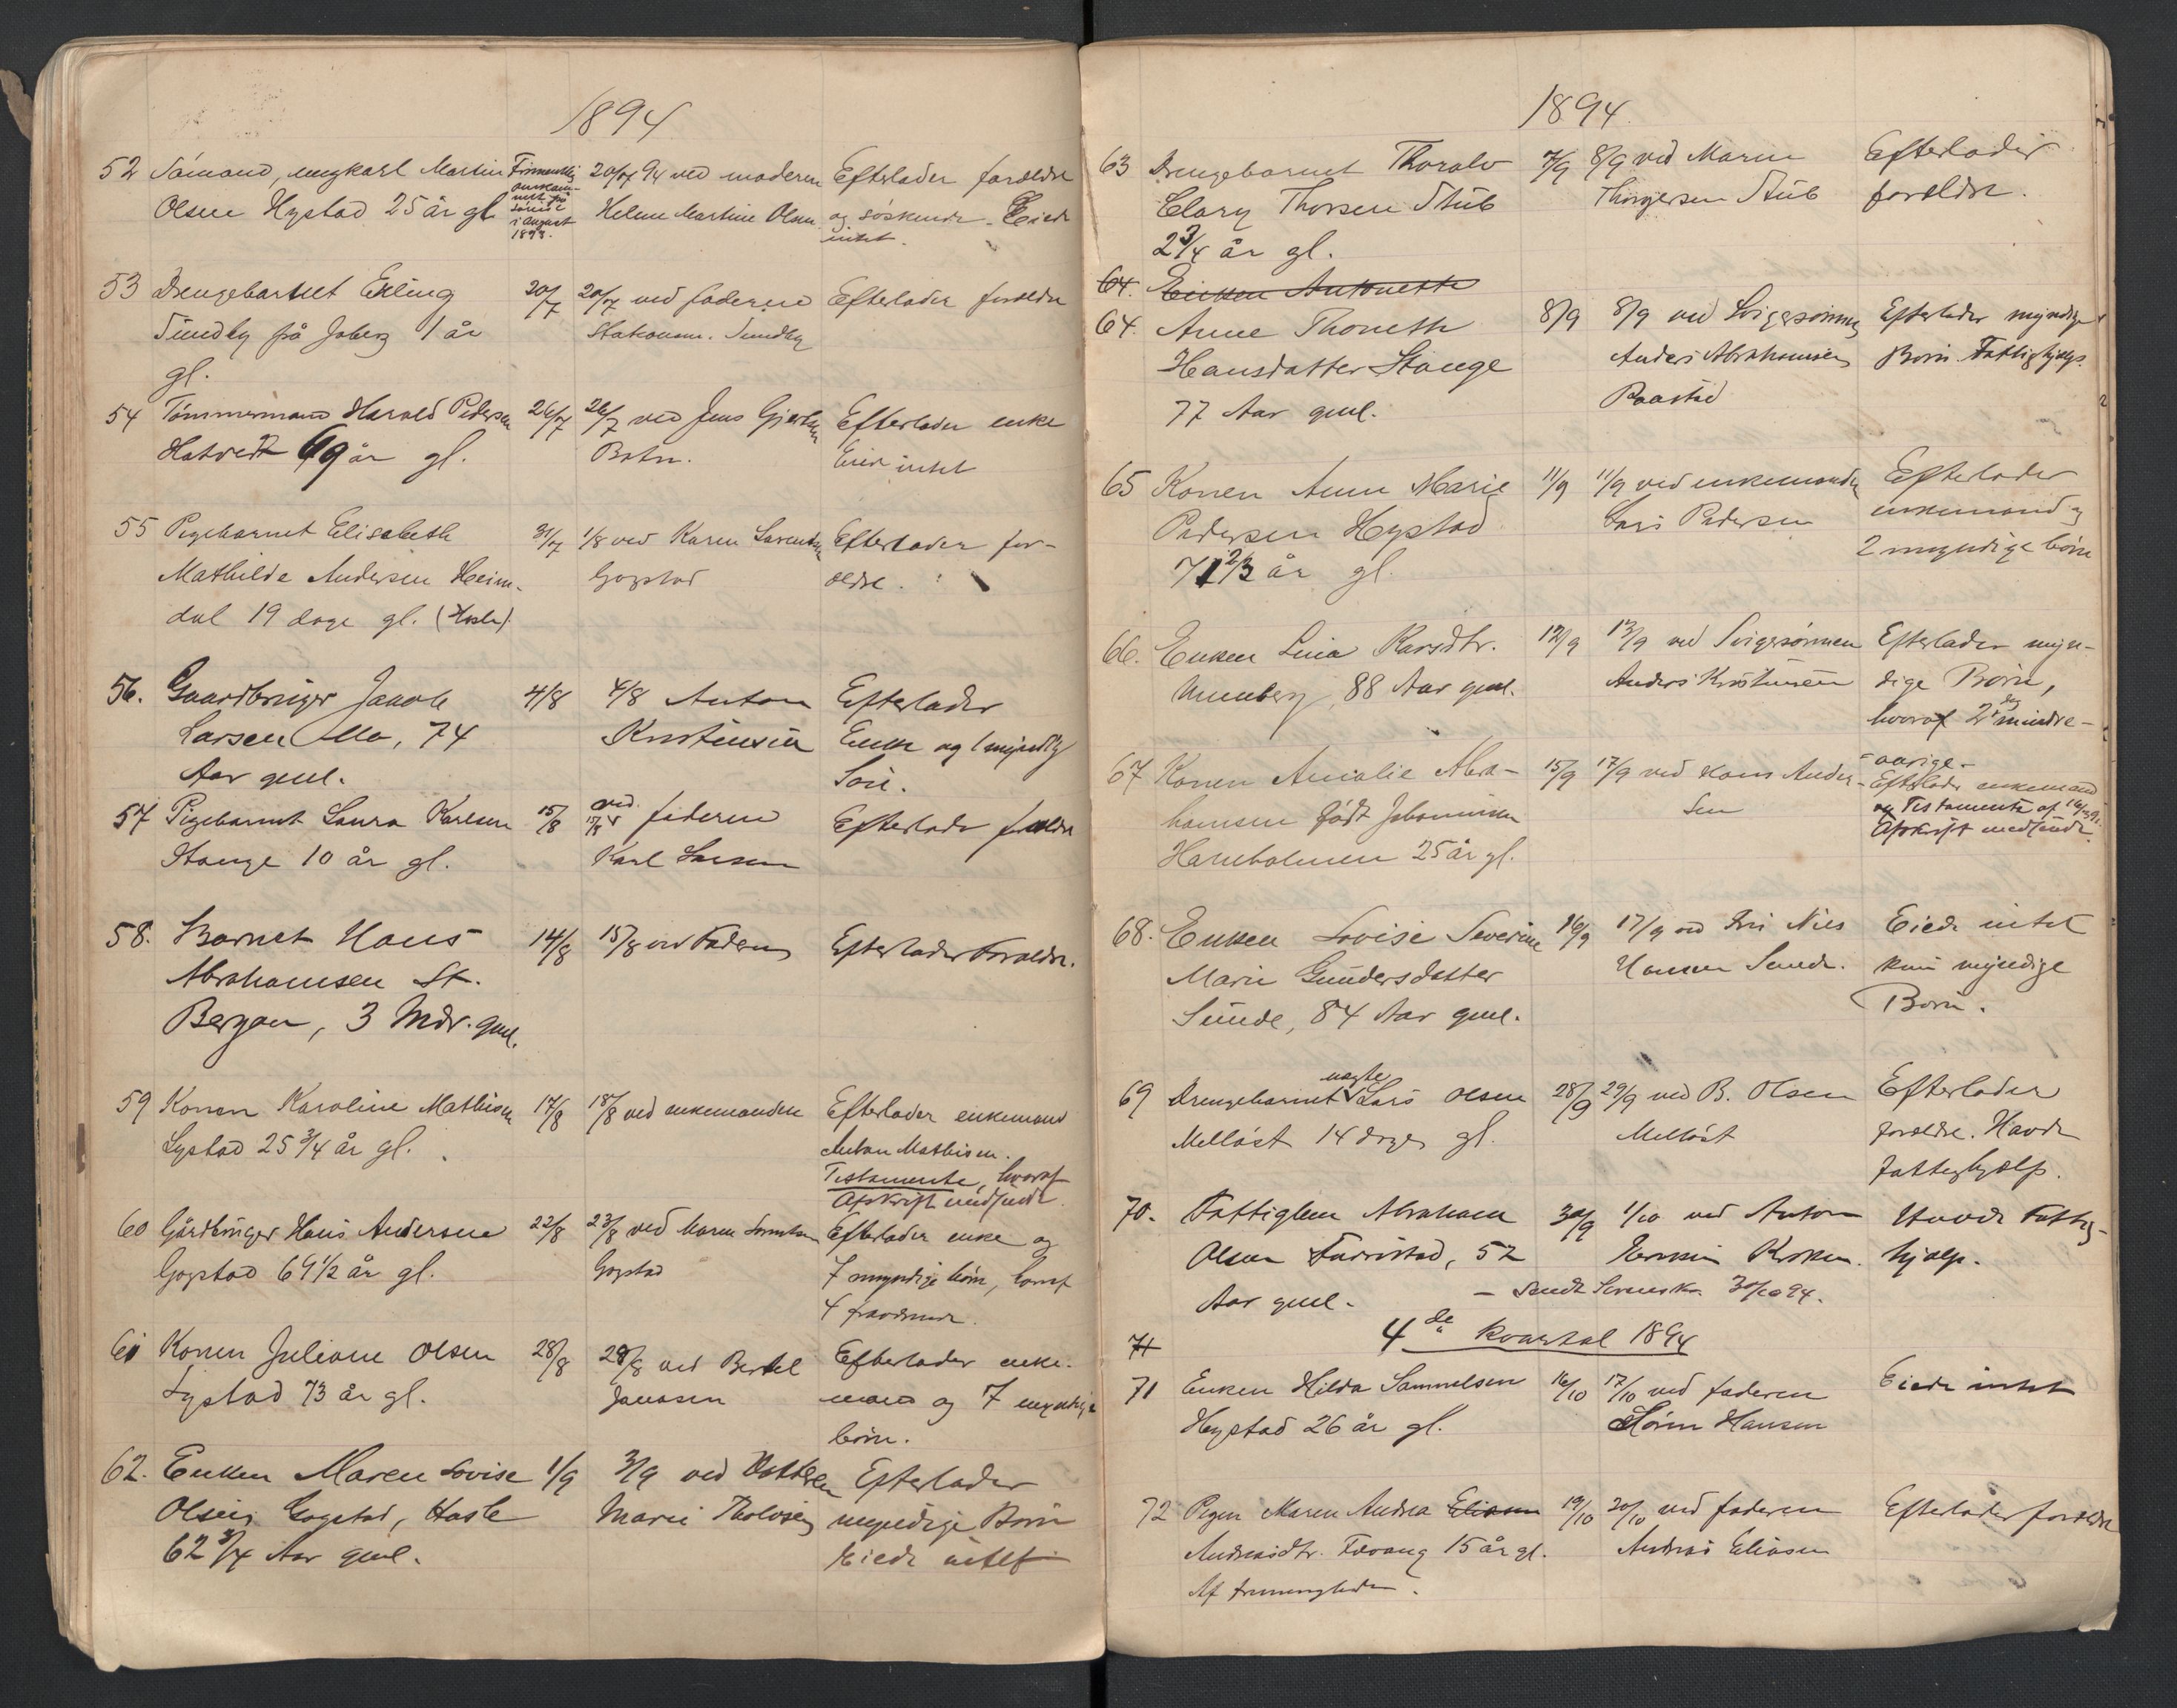 1894
52 Sömand, ungkarl Martin
Olsen Hystad 25 år gl.
Formentlig
omkom-
met på
i August
1893.
20/7 94 ved moderen
Helene Martine Olsen
Efterlader forældre
og söskende. Eiede
intet.
53 Drengebarnet Erling
Sundby på Joberg 1 år
gl.
20/7
20/7 ved faderen
Stationsm. Sundby
Efterlader forældre
54 Tömmermand Harald Pedersen
Hatvedt 69 år gl.
26/7
26/7 ved Jens Gjertsen
Efterlader enke
Eier intet
55 Pigebarnet Elisabeth
Mathilde Andersen Heim-
dal 19 dage gl. (Hasle)
31/7
1/8 ved Karen Lorentsen
Gogstad
Efterlader for-
ældre.
56. Gaardbruger Jacob
Larsen Mo, 74
Aar gml.
4/8
4/8 Anton
Kristensen
Efterlader
Enke og 1 myndig
Søn.
57 Pigebarnet Laura Karlsen
Stange 10 år gl.
15/8
ved
15/8 faderen
Karl Larsen
Efterlader forældre
58. Barnet Hans
Abrahamsen St.
Bergan, 3 Mdr. gml.
14/8
15/8 ved Faderen
Efterlader Forældre.
59 Konen Karoline Mathisen
Lystad 25 3/4 år gl.
17/8
18/8 ved enkemanden
Efterlader enkemand
Anton Mathisen.
Testamente, hvoraf
Afskrift medsendt.
60 Gårdbruger Hans Andersen
Gogstad 69 1/2 år gl.
22/8
23/8 ved Maren Lorentsen
Gogstad
Efterlader enke og
7 myndige börn, hvoraf
4 fraværende.
61 Konen Juliane Olsen
Lystad 73 år gl.
28/8
28/8 ved Bertel
Janssen
Efterlader enke-
mand og 7 myndige
börn.
62. Enken Maren Lovise
Olsen Gogstad, Hasle
62 3/4 Aar gml.
1/9
3/9 ved Datteren
Marie Tholvsen
Efterlader
myndige Børn
Eiede intet
1894.
63 Drengebarnet Thoralv
Clary Thorsen Stub
2 3/4 år gl.
7/9
8/9 ved Maren
Thorgersen Stub
Efterlader
forældre.
64. Enken Antonette
64. Anne Thoneth
Hansdatter Stange
77 Aar gml.
8/9
8/9 ved Svigersønnen
Anders Abrahamsen
Raastad
Efterlader myndige
Børn. Fattighjælp.
65 Konen Anne Marie
Pedersen Hystad
71 2/3 år gl.
11/9
11/9 ved enkemanden
Lars Pedersen
Efterlader
enkemand og
2 myndige börn
66. Enken Lina Larsdtr.
Unneberg, 88 Aar gml.
12/9
13/9 ved Svigersønnen
Anders Kristensen
Efterlader myn-
dige Børn,
hvoraf 2 mindre-
aarige.
67 Konen Amalie Abra-
hamsen födt Johannesen
Haneholmen 25 år gl.
15/9
17/9 ved Hans Ander-
sen
Efterlader enkemand
og Testamente af
Afskrift medsendt.
68. Enken Lovise Severine
Marie Gundersdatter
Sunde, 84 Aar gml.
16/9
17/9 ved Nils
Hansen Sunde.
Eiede intet
kun myndige
Børn.
69 Drengebarnet uægte Lars Olsen
Mellöst 14 dage gl.
28/9
29/9 ved B. Olsen
Mellöst
Efterlader
forældre. Havde
fattighjælp.
70. Fattiglem Abraham
Olsen Furustad, 52
Aar gml.
30/9
1/10 ved Anton
Havde Fattig-
hjælp.
– Sendt Sorensk. 30/10 94.
71
4de Kvartal 1894
71 Enken Hilda Samuelsen
Hystad 26 år gl.
16/10
17/10 ved faderen
Sören Hansen
Eiede intet
72 Pigen Maren Andrea Eliasen
Andreasdtr. Fevang 15 år gl.
19/10
20/10 ved faderen
Andreas Eliasen
Efterlader forældre